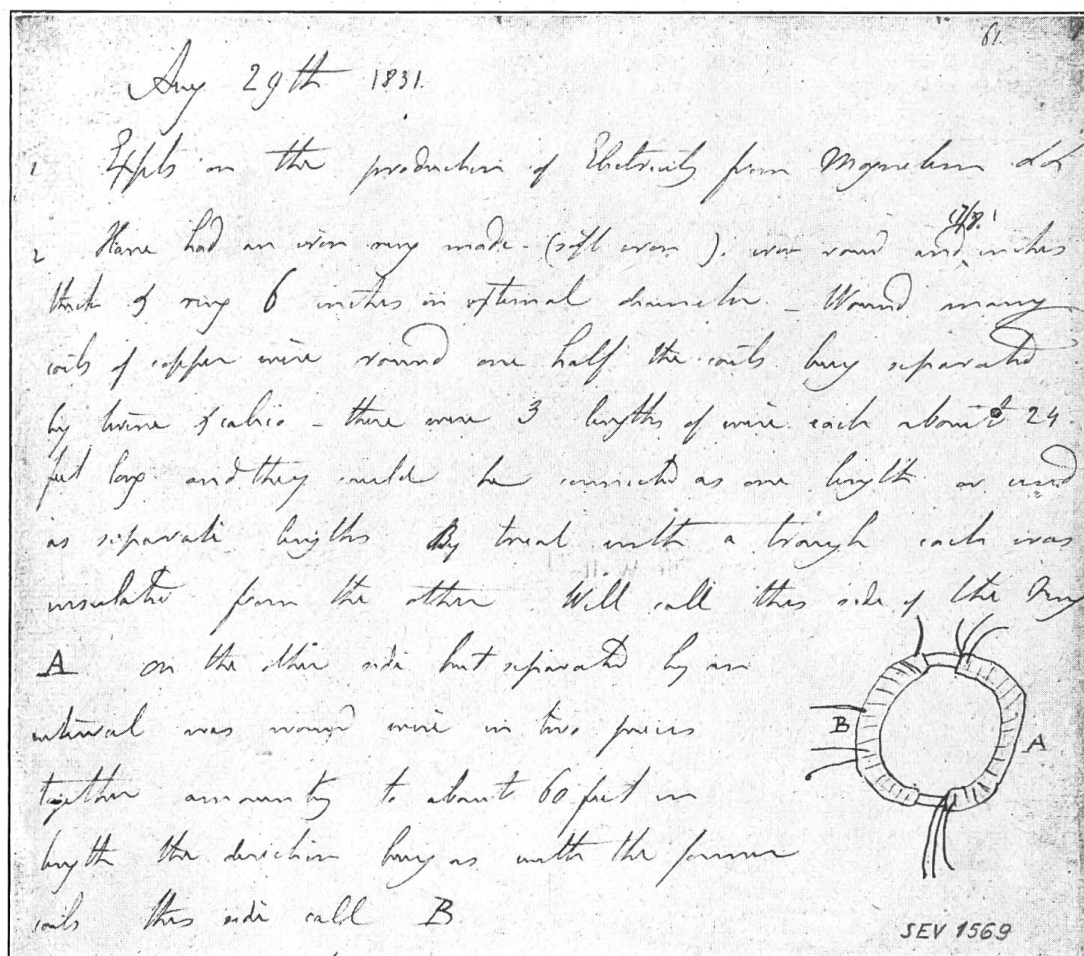 61.
Aug 29th 1831.
1 Expts on the production of Electricity from Magnetism &c &c
2 Have had an iron ring made (soft iron). iron round and 7/8 inches
thick & ring 6 inches in external diameter - Wound many
coils of copper wire round one half the coils being separated
by twine & calico - there were 3 lengths of wire each about 24
feet long and they could be connected as one length or used
as separate lengths By trial with a trough each was
insulated from the other Will call this side of the Ring
A on the other side but separated by an
interval was wound wire in two pieces
together amounting to about 60 feet in
length the direction being as with the former
coils this side call B
B
A
SEV 1569